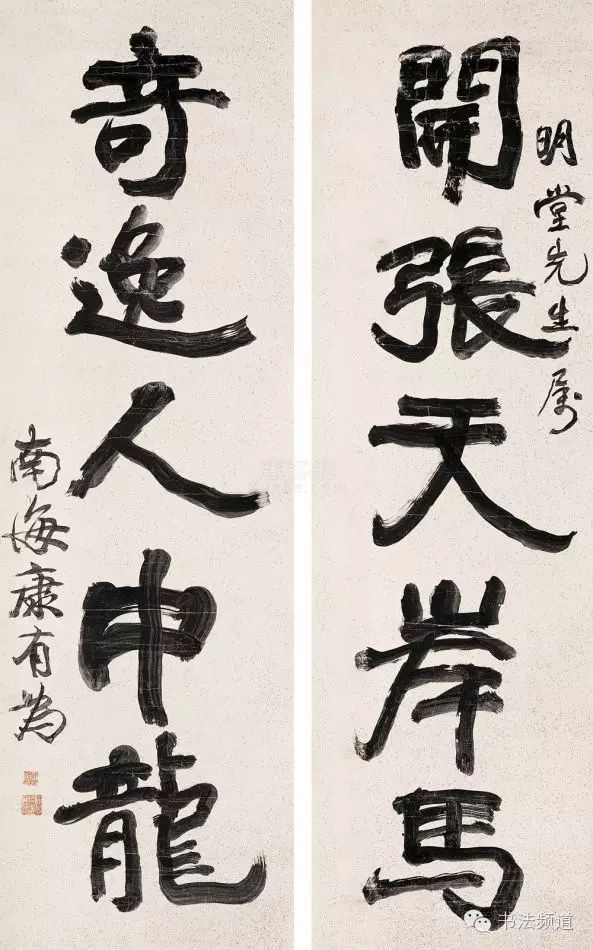 明堂先生属
開張天岸馬
奇逸人中龍
南海康有為
书法频道